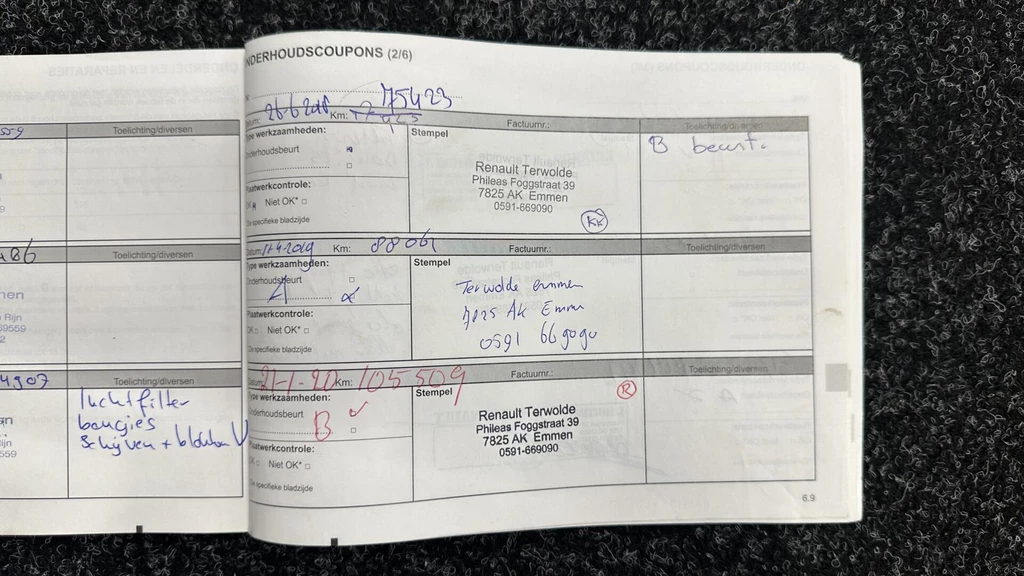 559
Toelichting/diversen
9
486
Toelichting/diversen
men
Rijn
69559
2
4907
Toelichting/diversen
luchtfilter
bougies
Schijven + blokken V
an
ijn
559
NDERHOUDSCOUPONS (2/6)
75423
Datum: 26-6-2018 Km:
Factuurnr.:
Toelichting/diversen
Type werkzaamheden:
Stempel
B beurt.
Onderhoudsbeurt
Renault Terwolde
Phileas Foggstraat 39
7825 AK Emmen
0591-669090
Plaatwerkcontrole:
OK Niet OK*
Zie specifieke bladzijde
KK
Datum: 17-4-2019 Km: 88061
Factuurnr.:
Toelichting/diversen
Type werkzaamheden:
Stempel
Onderhoudsbeurt
A
Terwolde emmen
7825 AK Emmen
0591 669090
Plaatwerkcontrole:
OK Niet OK*
Zie specifieke bladzijde
Datum: 21-1-20 Km: 105509
Factuurnr.:
Toelichting/diversen
Type werkzaamheden:
Stempel
R
Onderhoudsbeurt
B
Renault Terwolde
Phileas Foggstraat 39
7825 AK Emmen
0591-669090
Plaatwerkcontrole:
OK Niet OK*
Zie specifieke bladzijde
6.9